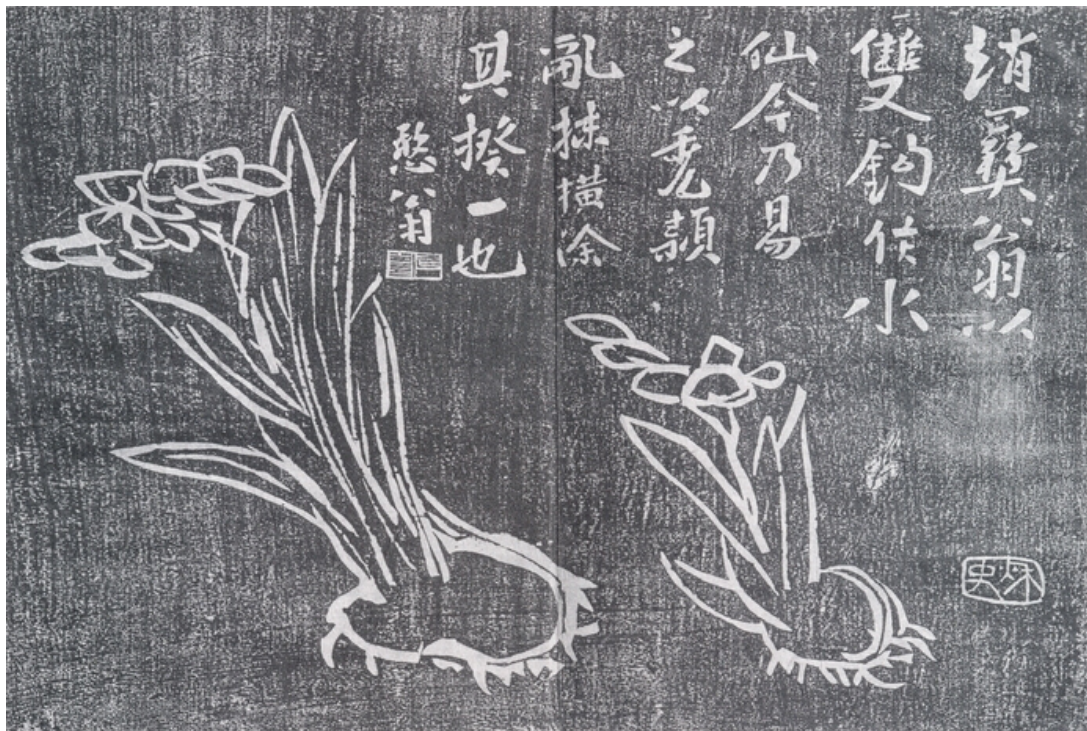 趙彝翁以
雙鈎作水
仙今乃易
之以禿穎
亂抹橫塗
其揆一也
憨翁